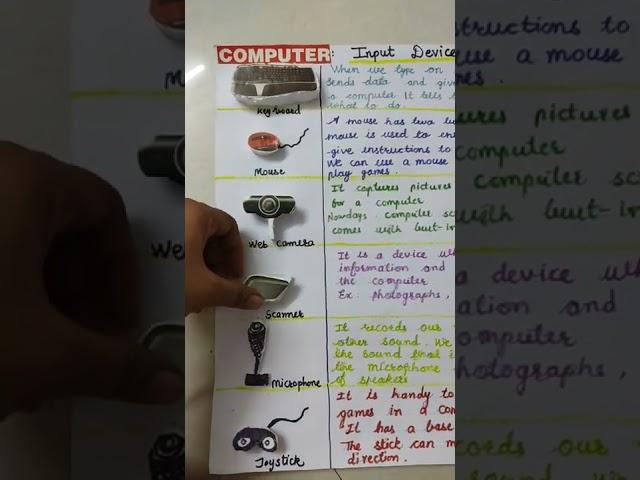 COMPUTER: Input Device
When we type on
sends data and giv
a computer It tells
what to do.
Keyboard
A mouse has two bu
mouse is used to en
give instructions to
We can use a mouse
play games.
Mouse
It captures pictures
for a computer
Nowdays computer sc
comes with built-in
Web camera
It is a device wh
information and
the computer
Ex: photographs,
Scanner
It records our
other sound. We
the sound that i
the microphone
of speakers
Microphone
It is handy to
games in a com
It has a base
The stick can m
direction.
Joystick
structions to
use a mouse
ures pictures
computer
computer sc
with built-in
a device wh
ation and
omputer
hotographs,
cords our